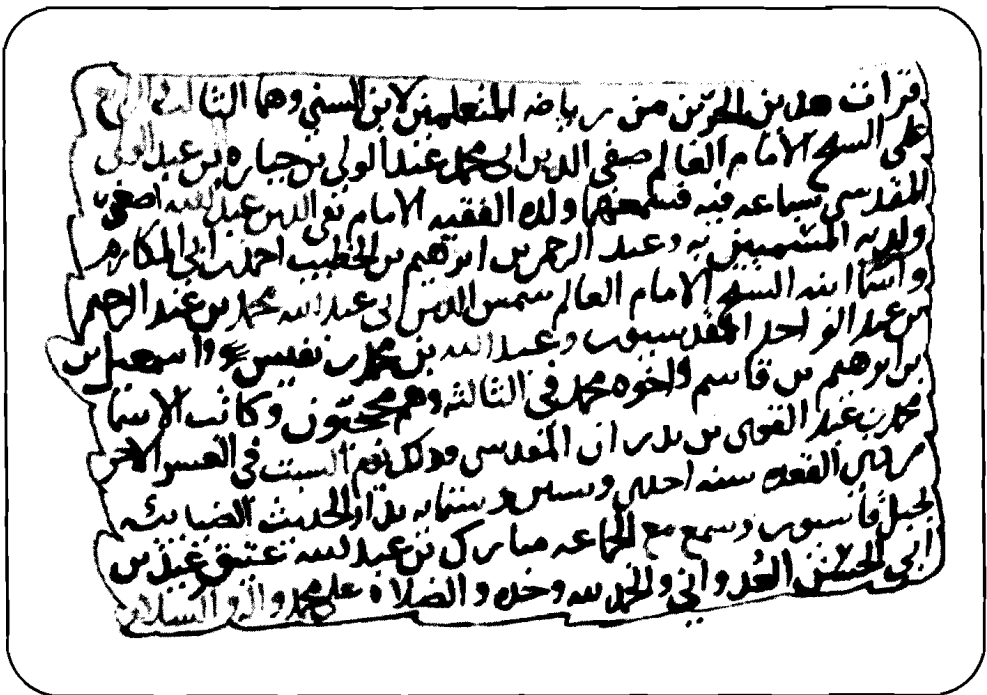 قرأت هذين الجزئين من رياضة المتعلمين لابن السني وهما الثالث والرابع
على الشيخ الامام العالم صفي الدين ابي محمد عبد الولي بن جبارة بن عبد الولي
المقدسي بسماعه فيه فسمعهما ولده الفقيه الامام تقي الدين عبد الله
ولديه المسميين به وعبد الرحمن بن ابرهيم بن الخطيب احمد بن ابي المكارم
واسما ابنه الشيخ الامام العالم شمس الدين ابي عبد الله محمد بن عبد الرحيم
بن عبد الواحد المقدسيون وعبد الله بن محمد بن نفيس واسمعيل بن
بن ابرهيم بن قاسم واخوه محمد في الثالثة وهم وكاتب الاسما
محمد بن عبد القوي بن بدران المقدسي وذلك يوم السبت في العشر الاخر
من ذي القعده سنه احدى وستين وستمايه بدار الحديث الضيائيه
بجبل قاسيون وسمع مع الجماعه مبارك بن عبد الله عتيق عبد بن
ابي الحسن العدواني والحمد لله وحده والصلاة على محمد واله والسلام